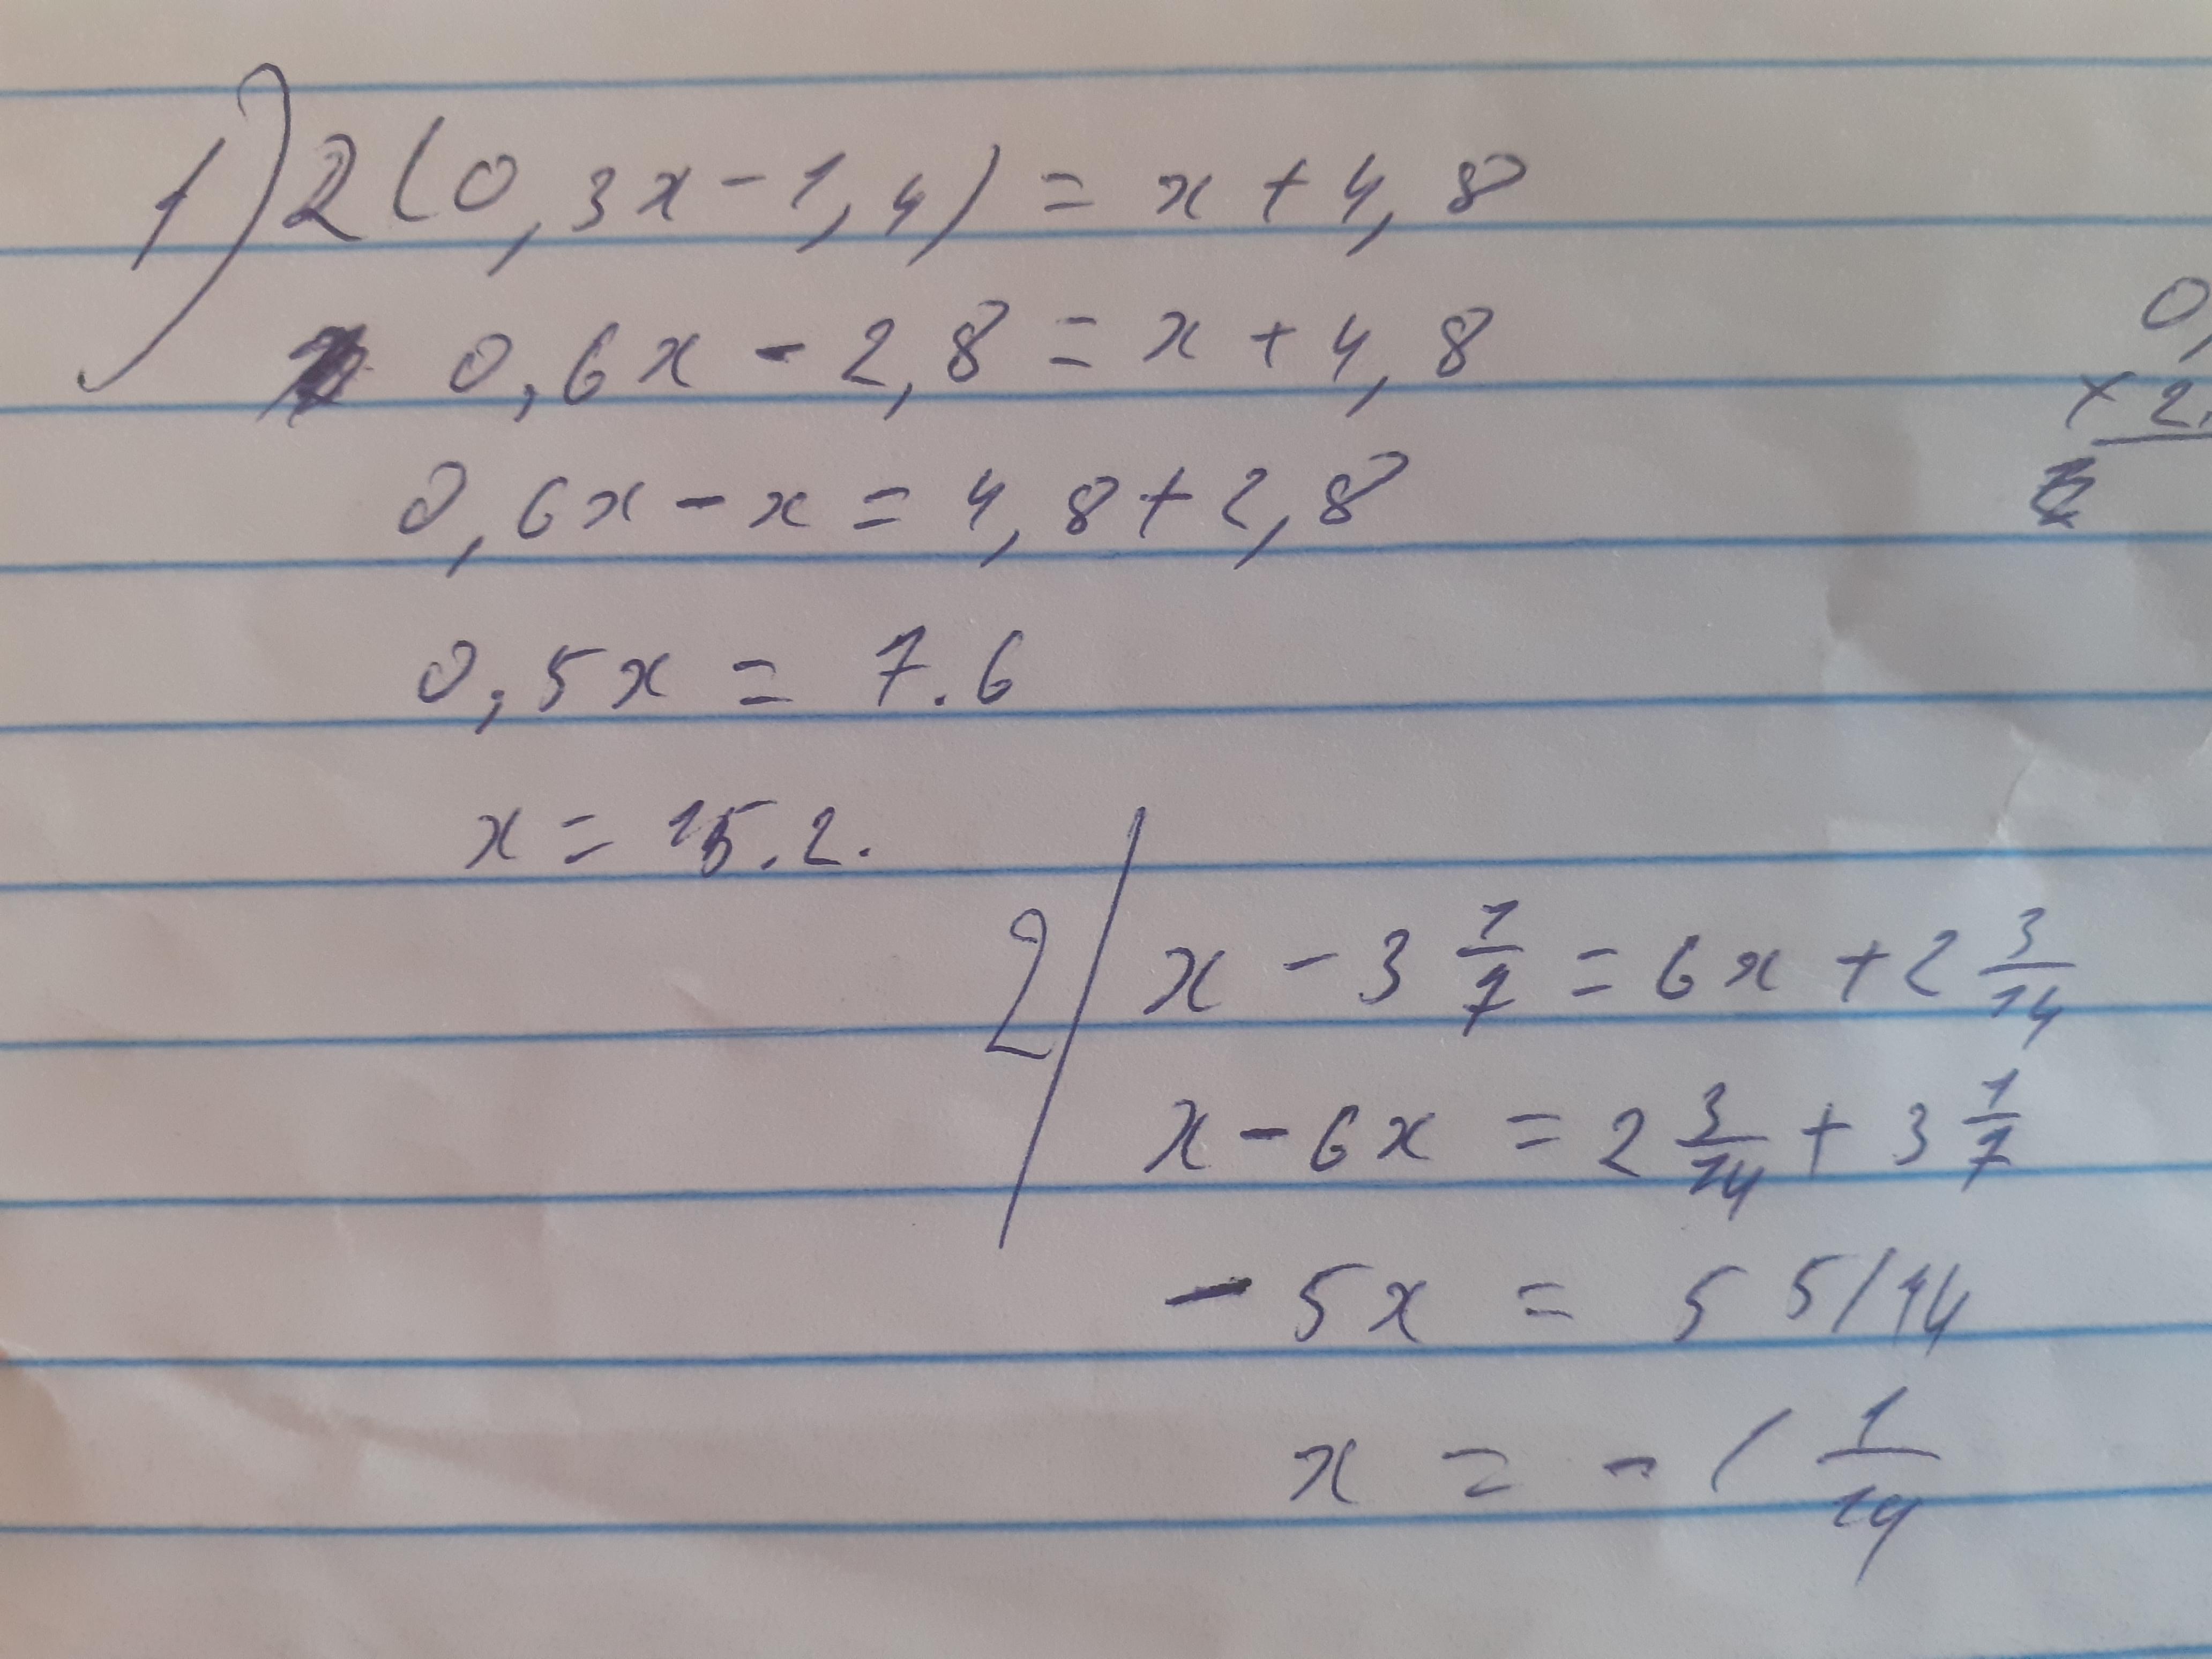 1) 2(0,3x-1,4) = x+4,8
0,6x - 2,8 = x+4,8
0,6x - x = 4,8+2,8
0,5x = 7.6
x = 15.2.
0,
× 2,
2) x - 3 1/7 = 6x + 2 3/14
x - 6x = 2 3/14 + 3 1/7
- 5x = 5 5/14
x = - 1 1/14